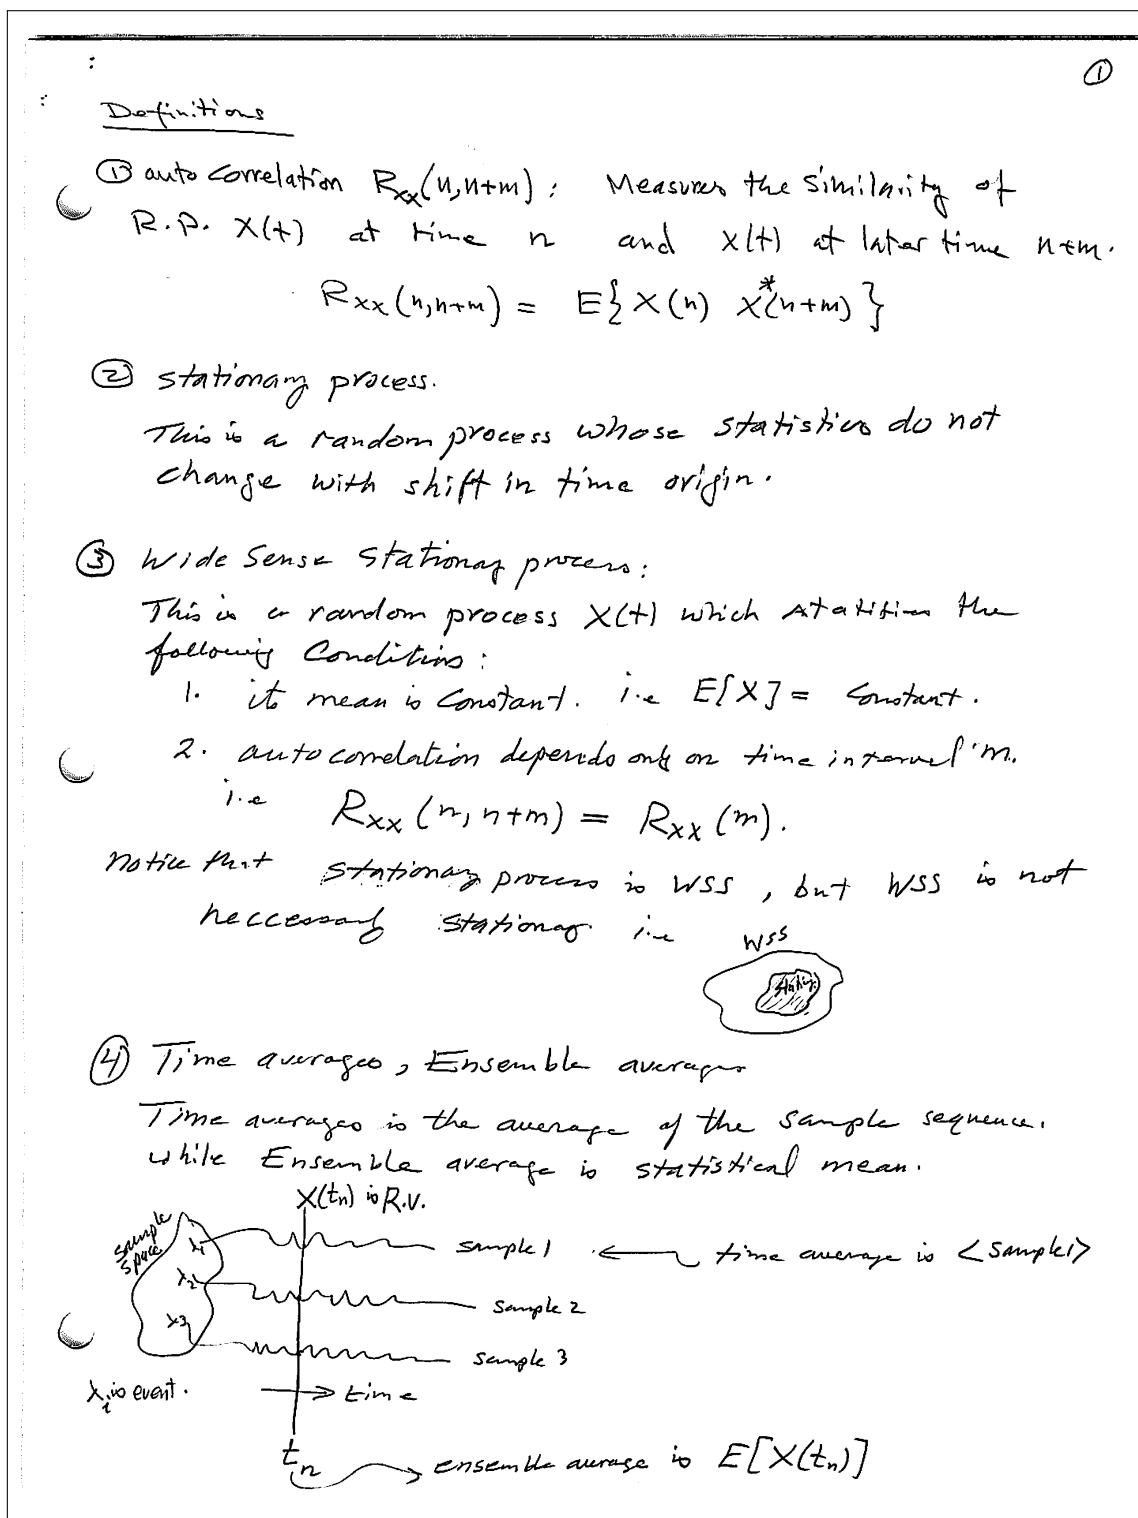 ①
Definitions
① auto correlation Rxx(n,n+m) : Measures the similarity of
R.P. X(t) at time n and X(t) at later time n+m.
Rxx(n,n+m) = E{X(n) X*(n+m)}
② stationary process.
This is a random process whose statistics do not
change with shift in time origin.
③ Wide Sense Stationary process:
This is a random process X(t) which statisfies the
following Conditions:
1. its mean is Constant. i.e E[X] = Constant.
2. autocorrelation depends only on time interval 'm.
i.e Rxx(n,n+m) = Rxx(m).
notice that stationary process is WSS, but WSS is not
neccessary stationary i.e
WSS
④ Time averages, Ensemble averages
Time averages is the average of the sample sequence.
while Ensemble average is statistical mean.
X(tn) is R.V.
sample space
λ1
sample 1
time average is <sample1>
λ2
sample 2
λ3
sample 3
λi is event.
time
tn
ensemble average is E[X(tn)]